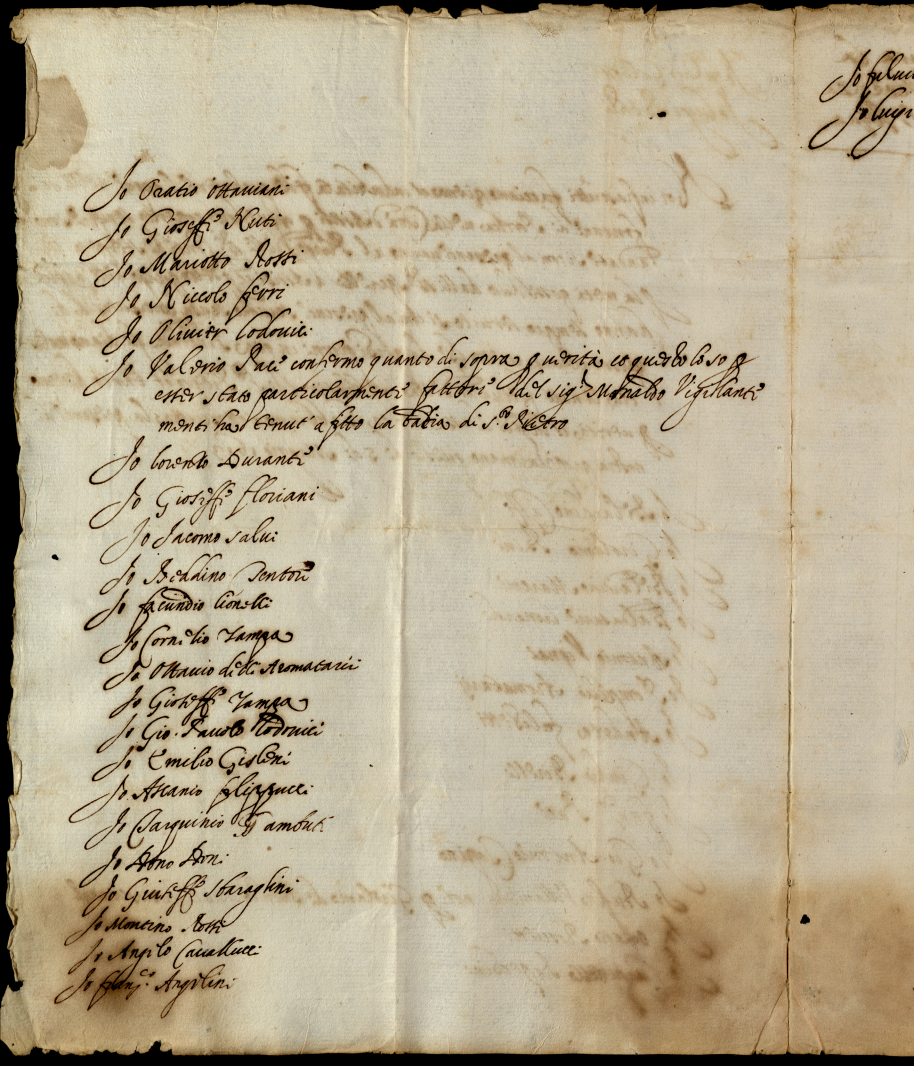 Io Oratio Ottaviani
Io Gioseffe Nuti
Io Mariotto Rossi
Io Niccolo ferri
Io Olivier lodovici
Io Valerio confermo quanto di sopra verità questo lo so
esser stato particolarmente fattore del sig.r Monaldo Vigilante
menti ha tenut'a fitto la badia di s.n Pietro
Io lorenzo Durante
Io Gioseffe floriani
Io Jacomo salvi
Io
Io facundio lionelli
Io Cornelio Zampa
Io Ottavio delli Aromatarii
Io Gioseffe Zampa
Io Gio. Pauolo lodovici
Io Emilio Gisleni
Io Ascanio filippucci
Io Tarquinio Gambuti
Io
Io Giuseffe sbaraglini
Io Montino Rossi
Io Angelo Cavallucci
Io franc.o Angelini
Io
Io luigi